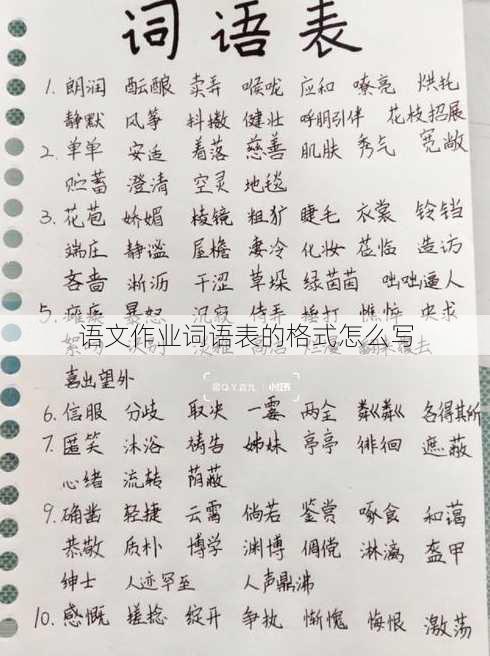 词语表
1. 朗润 酝酿 卖弄 喉咙 应和 嘹亮 烘托
静默 风筝 抖擞 健壮 呼朋引伴 花枝招展
2. 单单 安适 着落 慈善 肌肤 秀气 宽敞
贮蓄 澄清 空灵 地毯
3. 花苞 娇媚 棱镜 粗犷 睫毛 衣裳 铃铛
端庄 静谧 屋檐 凄冷 化妆 莅临 造访
吝啬 淅沥 干涩 草垛 绿茵茵 咄咄逼人
5. 瘫痪 暴怒 沉寂 侍弄 捶打 憔悴 央求
语文作业词语表的格式怎么写
喜出望外
小红书
6. 信服 分歧 取决 一霎 两全 粼粼 各得其所
7. 匿笑 沐浴 祷告 姊妹 亭亭 徘徊 遮蔽
心绪 流转 荫蔽
9. 确凿 轻捷 云霄 倘若 鉴赏 啄食 和蔼
恭敬 质朴 博学 渊博 倜傥 淋漓 盔甲
绅士 人迹罕至 人声鼎沸
10. 感慨 搓捻 绽开 争执 惭愧 悔恨 激荡